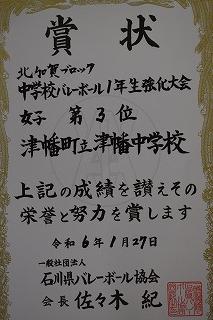 賞状
北加賀ブロック
中学校バレーボール1年生強化大会
女子 第3位
津幡町立津幡中学校
上記の成績を讃えその
栄誉と努力を賞します
令和6年1月27日
一般社団法人
石川県バレーボール協会
会長 佐々木 紀